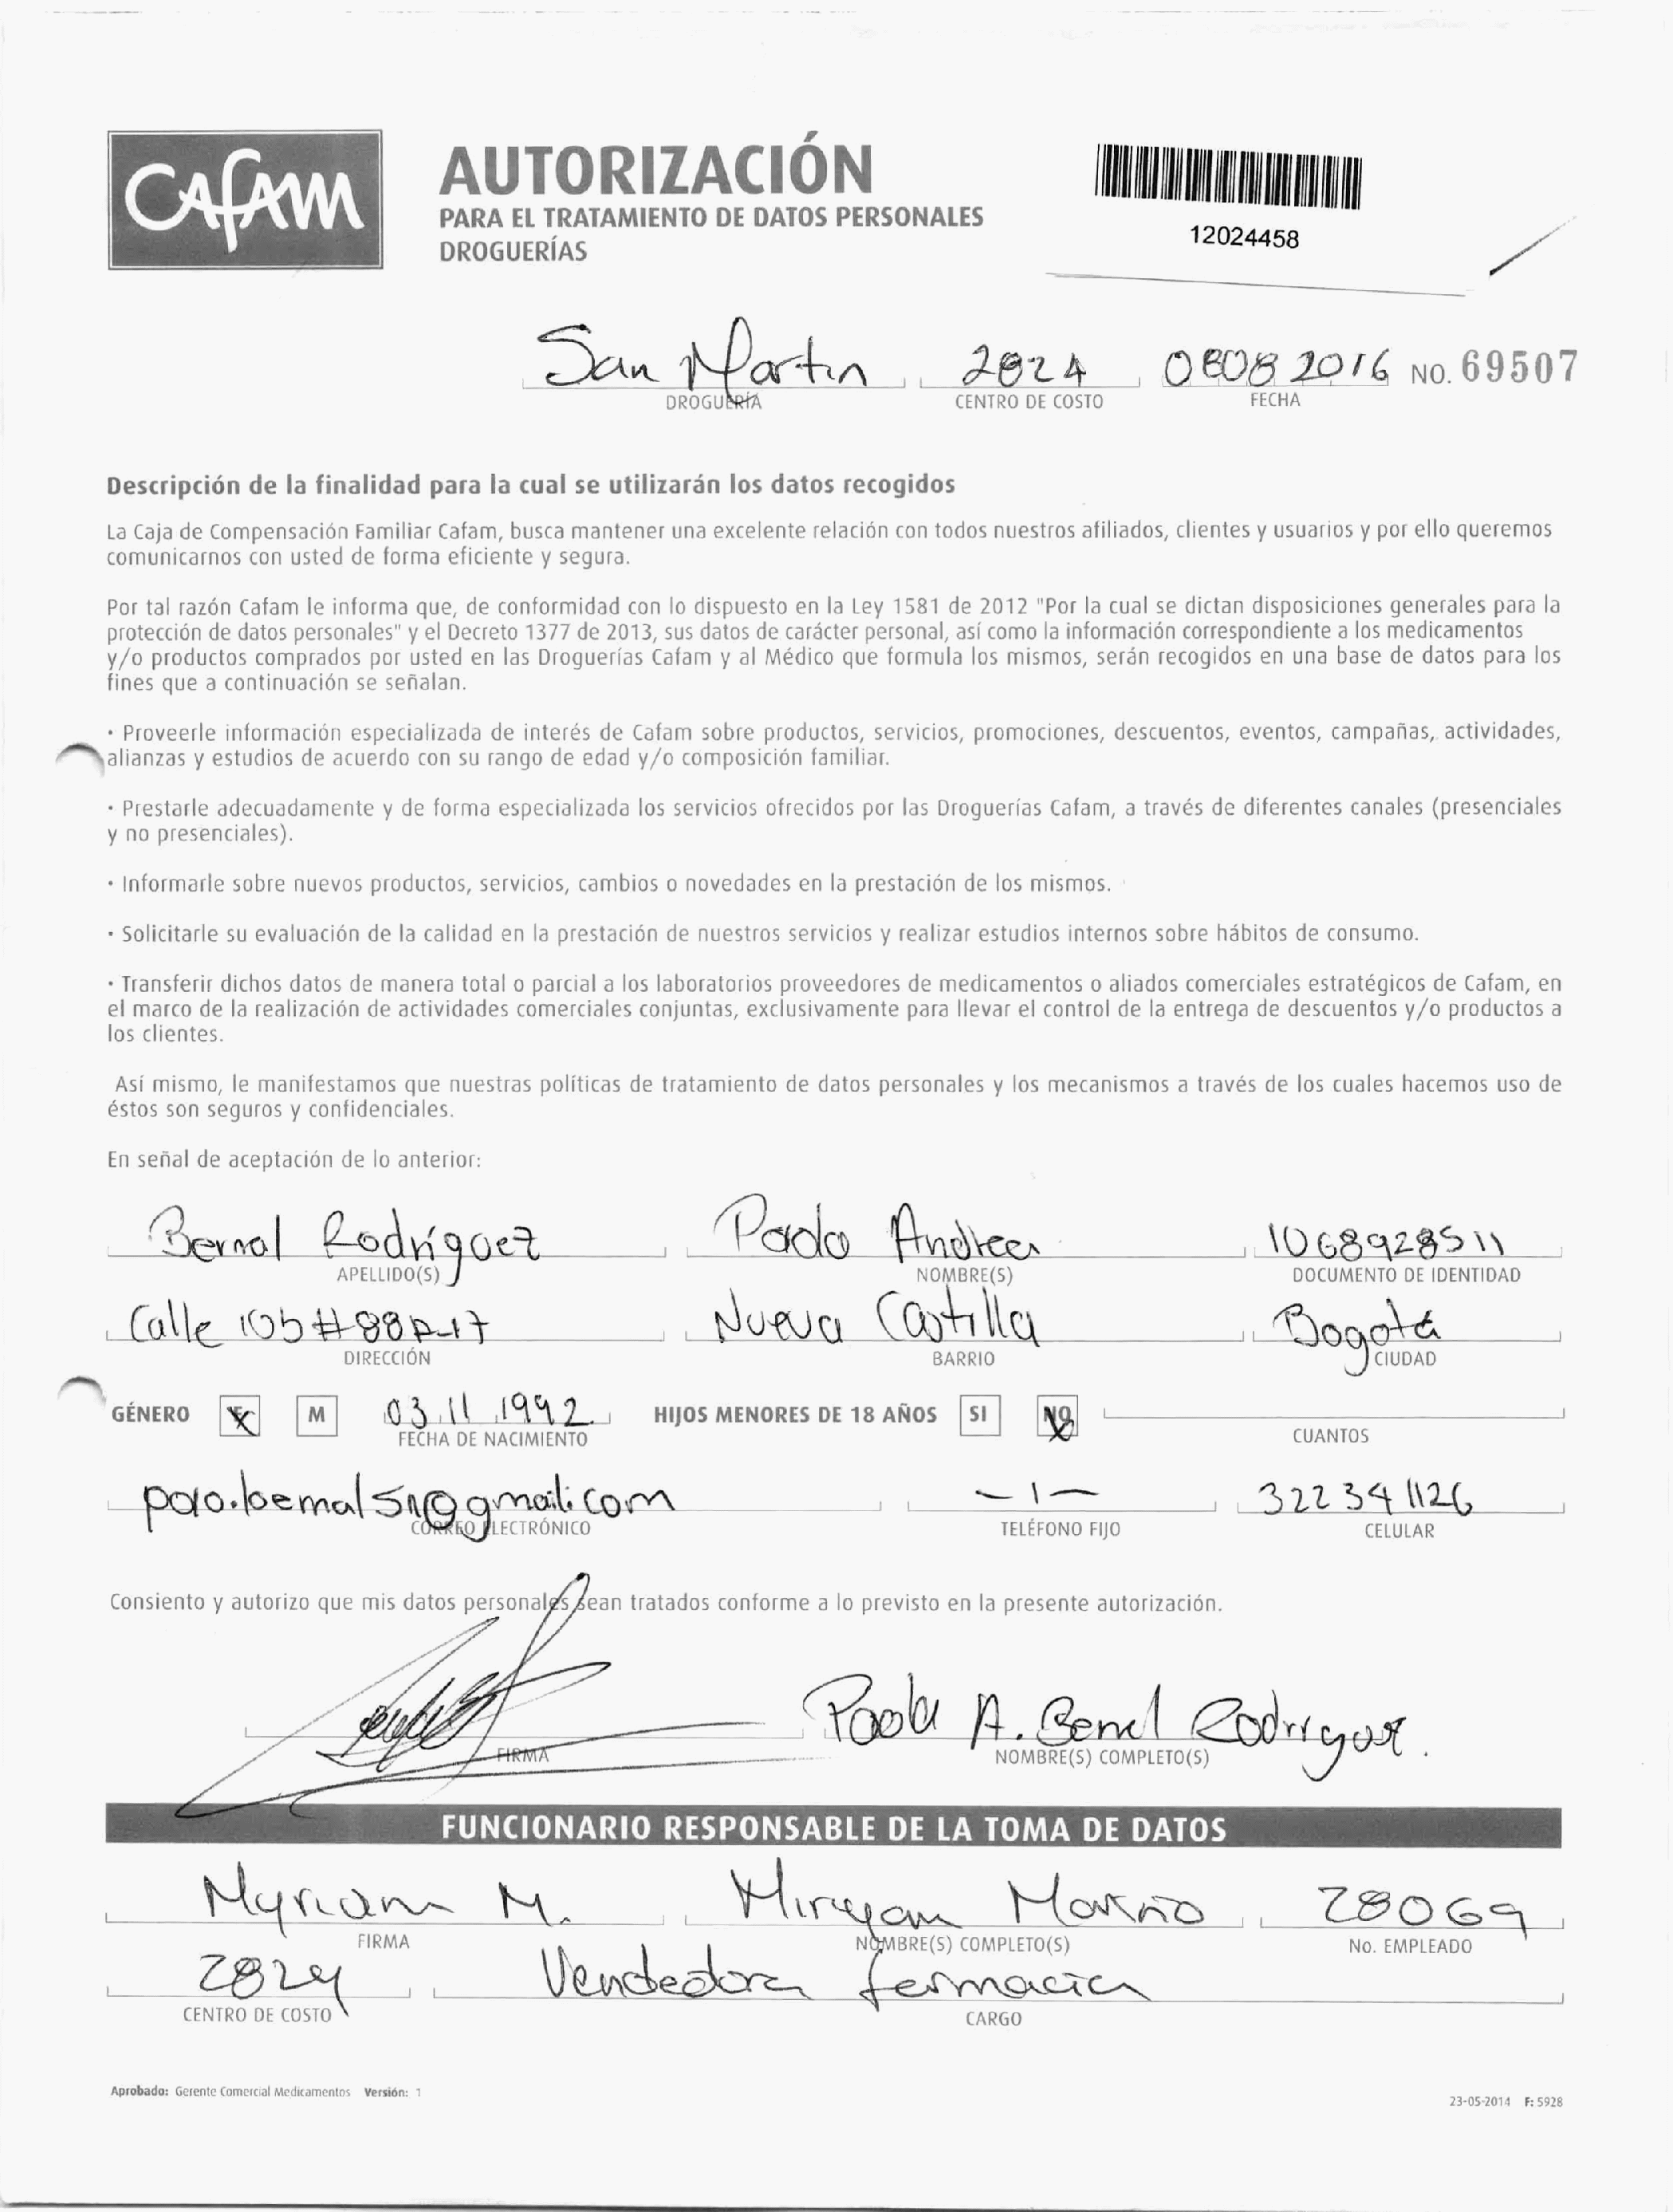 CAFAM
AUTORIZACIÓN
PARA EL TRATAMIENTO DE DATOS PERSONALES
DROGUERÍAS
12024458
San Martin 2824 08 08 2016 NO. 69507
DROGUERÍA CENTRO DE COSTO FECHA
Descripción de la finalidad para la cual se utilizarán los datos recogidos
La Caja de Compensación Familiar Cafam, busca mantener una excelente relación con todos nuestros afiliados, clientes y usuarios y por ello queremos
comunicarnos con usted de forma eficiente y segura.
Por tal razón Cafam le informa que, de conformidad con lo dispuesto en la Ley 1581 de 2012 "Por la cual se dictan disposiciones generales para la
protección de datos personales" y el Decreto 1377 de 2013, sus datos de carácter personal, así como la información correspondiente a los medicamentos
y/o productos comprados por usted en las Droguerías Cafam y al Médico que formula los mismos, serán recogidos en una base de datos para los
fines que a continuación se señalan.
· Proveerle información especializada de interés de Cafam sobre productos, servicios, promociones, descuentos, eventos, campañas, actividades,
alianzas y estudios de acuerdo con su rango de edad y/o composición familiar.
· Prestarle adecuadamente y de forma especializada los servicios ofrecidos por las Droguerías Cafam, a través de diferentes canales (presenciales
y no presenciales).
· Informarle sobre nuevos productos, servicios, cambios o novedades en la prestación de los mismos.
· Solicitarle su evaluación de la calidad en la prestación de nuestros servicios y realizar estudios internos sobre hábitos de consumo.
· Transferir dichos datos de manera total o parcial a los laboratorios proveedores de medicamentos o aliados comerciales estratégicos de Cafam, en
el marco de la realización de actividades comerciales conjuntas, exclusivamente para llevar el control de la entrega de descuentos y/o productos a
los clientes.
Así mismo, le manifestamos que nuestras políticas de tratamiento de datos personales y los mecanismos a través de los cuales hacemos uso de
éstos son seguros y confidenciales.
En señal de aceptación de lo anterior:
Bernal Rodríguez Paola Andrea 1068928511
APELLIDO(S) NOMBRE(S) DOCUMENTO DE IDENTIDAD
Calle Nueva Castilla Bogotá
DIRECCIÓN BARRIO CIUDAD
GÉNERO F M 03 11 1992 HIJOS MENORES DE 18 AÑOS SI NO
FECHA DE NACIMIENTO CUANTOS
-1- 322 34 1126
CORREO ELECTRÓNICO TELÉFONO FIJO CELULAR
Consiento y autorizo que mis datos personales sean tratados conforme a lo previsto en la presente autorización.
Paola A. Bernal Rodriguez.
FIRMA NOMBRE(S) COMPLETO(S)
FUNCIONARIO RESPONSABLE DE LA TOMA DE DATOS
Myriam M. 28069
FIRMA NOMBRE(S) COMPLETO(S) No. EMPLEADO
2824 Vendedora farmacia
CENTRO DE COSTO CARGO
Aprobado: Gerente Comercial Medicamentos Versión: 1
23-05-2014 F: 5928